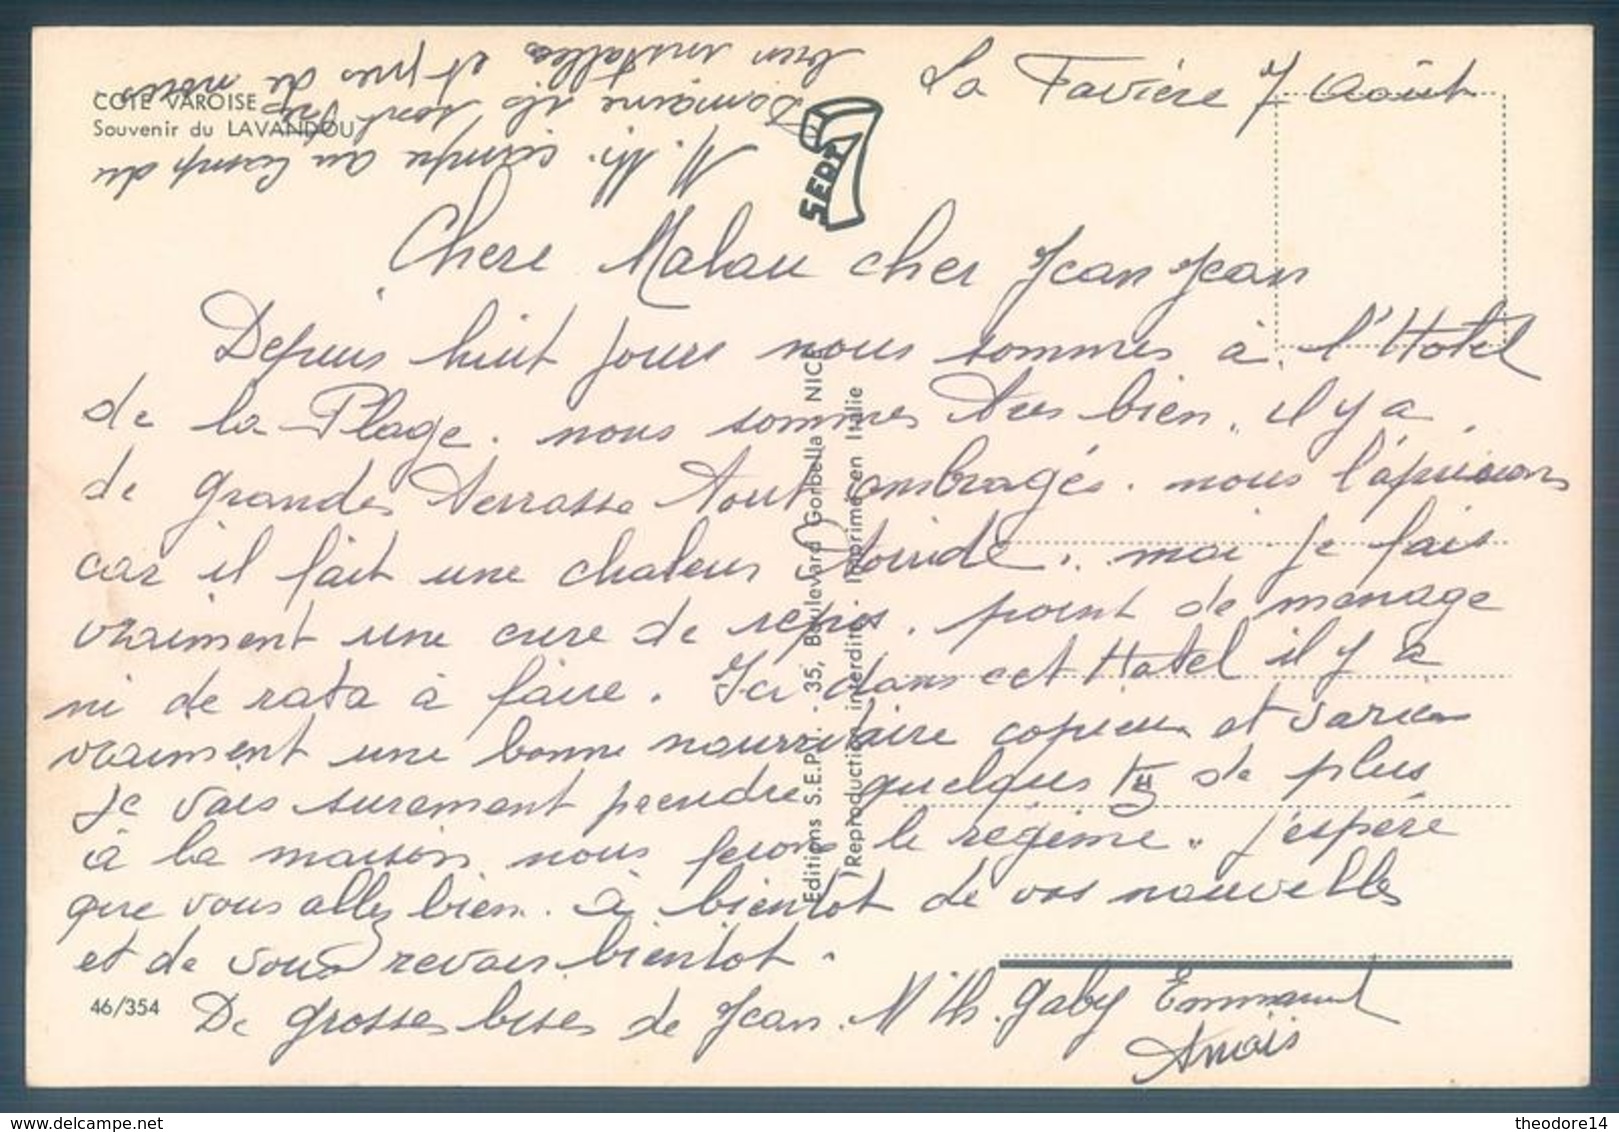 La Favière 7 Août
COTE VAROISE
Souvenir du LAVANDOU
M. Th. campe au Camp du
Domaine ils sont très
bien installés et près de nous
SEPT 7
Chere Malou cher Jean Jean
Depuis huit jours nous sommes à l'Hotel
de la Plage. nous sommes tres bien, il y a
de grandes terrasse tout ombragés. nous l'aprecions
car il fait une chaleur torride.. moi je fais
vraiment une cure de repos. point de menage
ni de rata à faire. Ici dans cet Hotel il y a
vraiment une bonne nourritaire copieux et varies
je vais surement prendre quelques Kg de plus
à la maison nous ferons le regime.. j'espère
que vous allez bien. à bientot de vos nouvelles
et de vous revoir bientot.
De grosses bises de Jean. M Th. Gaby Emmanuel
Anaïs
46/354
Editions S.E.P.T. - 35, Boulevard Gorbella NICE
(Reproduction interdite) Imprimé en Italie
theodore14